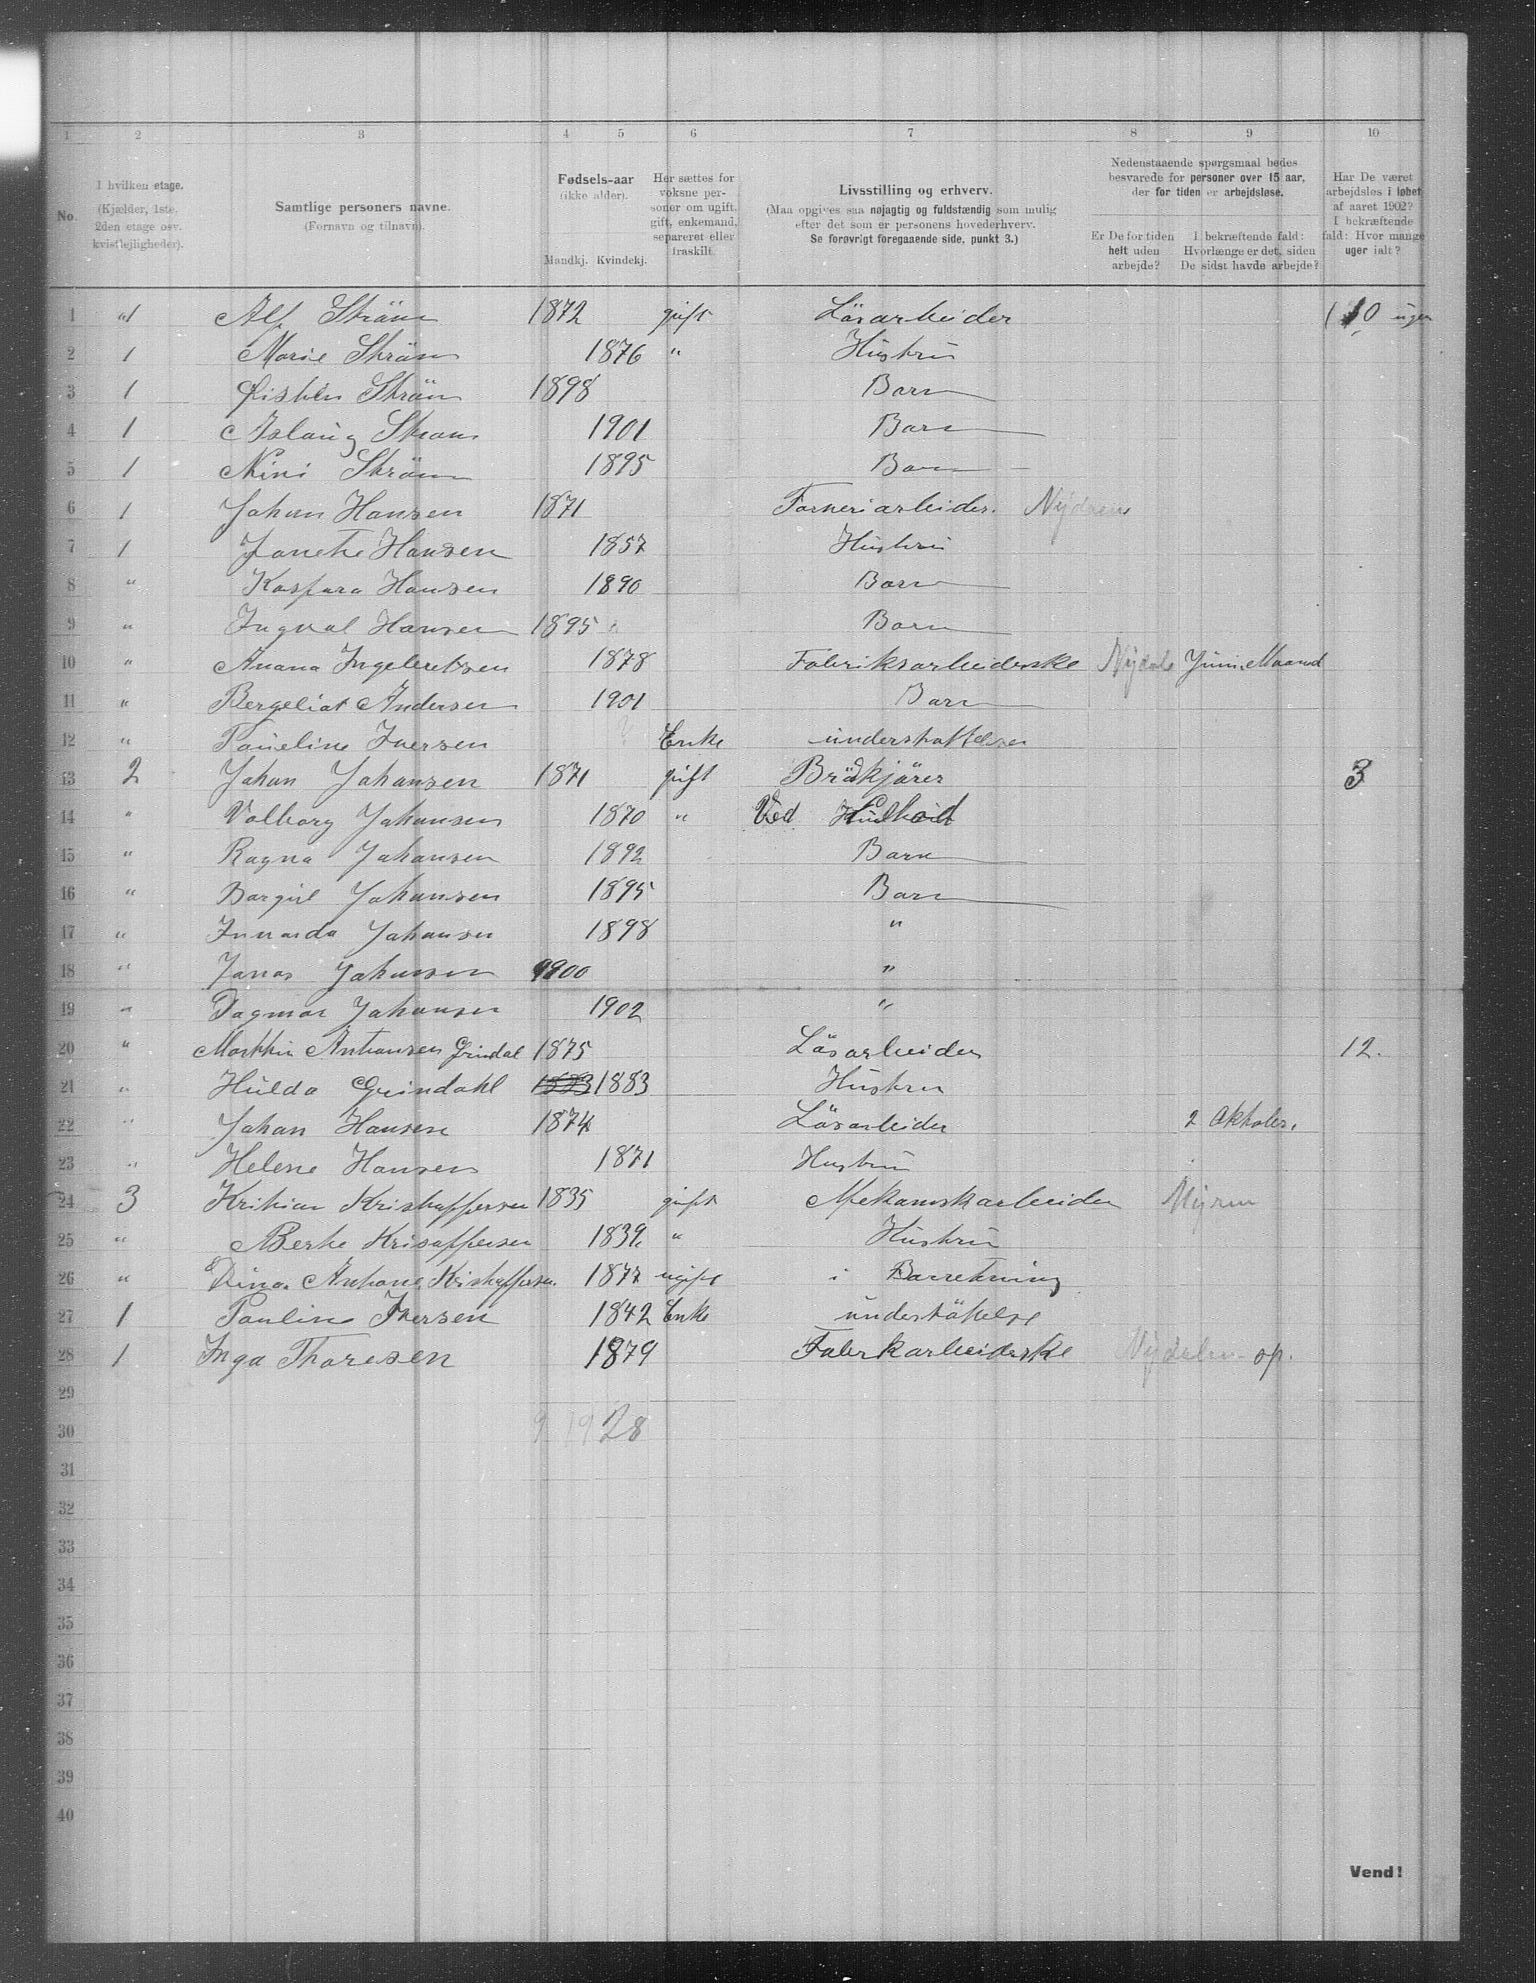 1 2 3 4 5 6 7 8 9 10
No.
I hvilken etage. (Kjælder, 1ste, 2den etage osv. kvistlejligheder).
Samtlige personers navne. (Fornavn og tilnavn).
Fødsels-aar (ikke alder). Mandkj. Kvindekj.
Her sættes for voksne personer om ugift, gift, enkemand, separeret eller fraskilt.
Livsstilling og erhverv. (Maa opgives saa nøjagtig og fuldstændig som mulig efter det som er personens hovederhverv. Se forøvrigt foregaaende side, punkt 3.)
Nedenstaaende spørgsmaal bedes besvarede for personer over 15 aar, der for tiden er arbejdsløse.
Er De for tiden helt uden arbejde?
I bekræftende fald: Hvorlænge er det, siden De sidst havde arbejde?
Har De været arbejdsløs i løbet af aaret 1902? I bekræftende fald: Hvor mange uger ialt?
1 1 Alf Ström 1872 gift Lösarbeider 10 uger
2 1 Marie Ström 1876 " Hustru
3 1 Ström 1898 Barn
4 1 Aslaug Strøm 1901 Barn
5 1 Nini Ström 1895 Barn
6 1 Johan Hansen 1871 Farveriarbeider. Nydalen
7 1 Janethe Hansen 1857 Hustru
8 " Kaspara Hansen 1890 Barn
9 " Ingval Hansen 1895 " Barn
10 " Anana Ingebretsen 1878 Fabriksarbeiderske Nydale Juni Maaned
11 " Bergeliot Andersen 1901 Barn
12 " Paueline Iversen ? Enke understöttelse
13 2 Johan Johansen 1871 gift Brödkjörer 3
14 " Valborg Johansen 1870 " Ved
15 " Ragna Johansen 1892 Barn
16 " Borgil Johansen 1895 Barn
17 " Johansen 1898 "
18 " Jonas Johansen 1900 "
19 " Dagmar Johansen 1902 "
20 " Marthin Anthonsen Grindal 1875 Lösarbeider 12.
21 " Hulda Grindahl 1883 1883 Hustru
22 " Johan Hansen 1874 Lösarbeider 2 Oktober.
23 " Helene Hansen 1871 Hustru
24 3 Kristian Kristoffersen 1835 gift Mekanskarbeider Myren
25 " Berte Krisoffersen 1839 " Hustru
26 " Dina Anthone Kristoffersen. 1877 ugift i Barretning
27 1 Pauline Iversen 1842 Enke understöttelse
28 1 Inga Thoresen 1879 Faberkarbeiderske Nydalen op.
29
30 9 19 28
31
32
33
34
35
36
37
38
39
40
Vend!